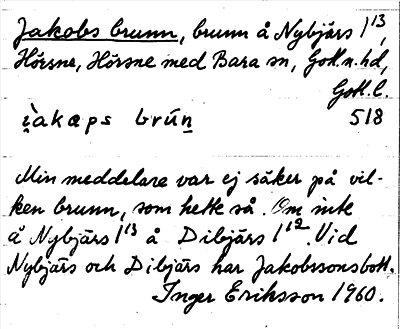 Jakobs brunn, brunn å Nybjärs 1¹³,
Hörsne, Hörsne med Bara sn, Gotl.n.hd,
Gotl.l.
ì̯akaps brún̲ 518
Min meddelare var ej säker på vil-
ken brunn, som hette så. Om inte
å Nybjärs 1¹³ å Dibjärs 1¹². Vid
Nybjärs och Dibjärs har Jakobssonsbott.
Inger Eriksson 1960.